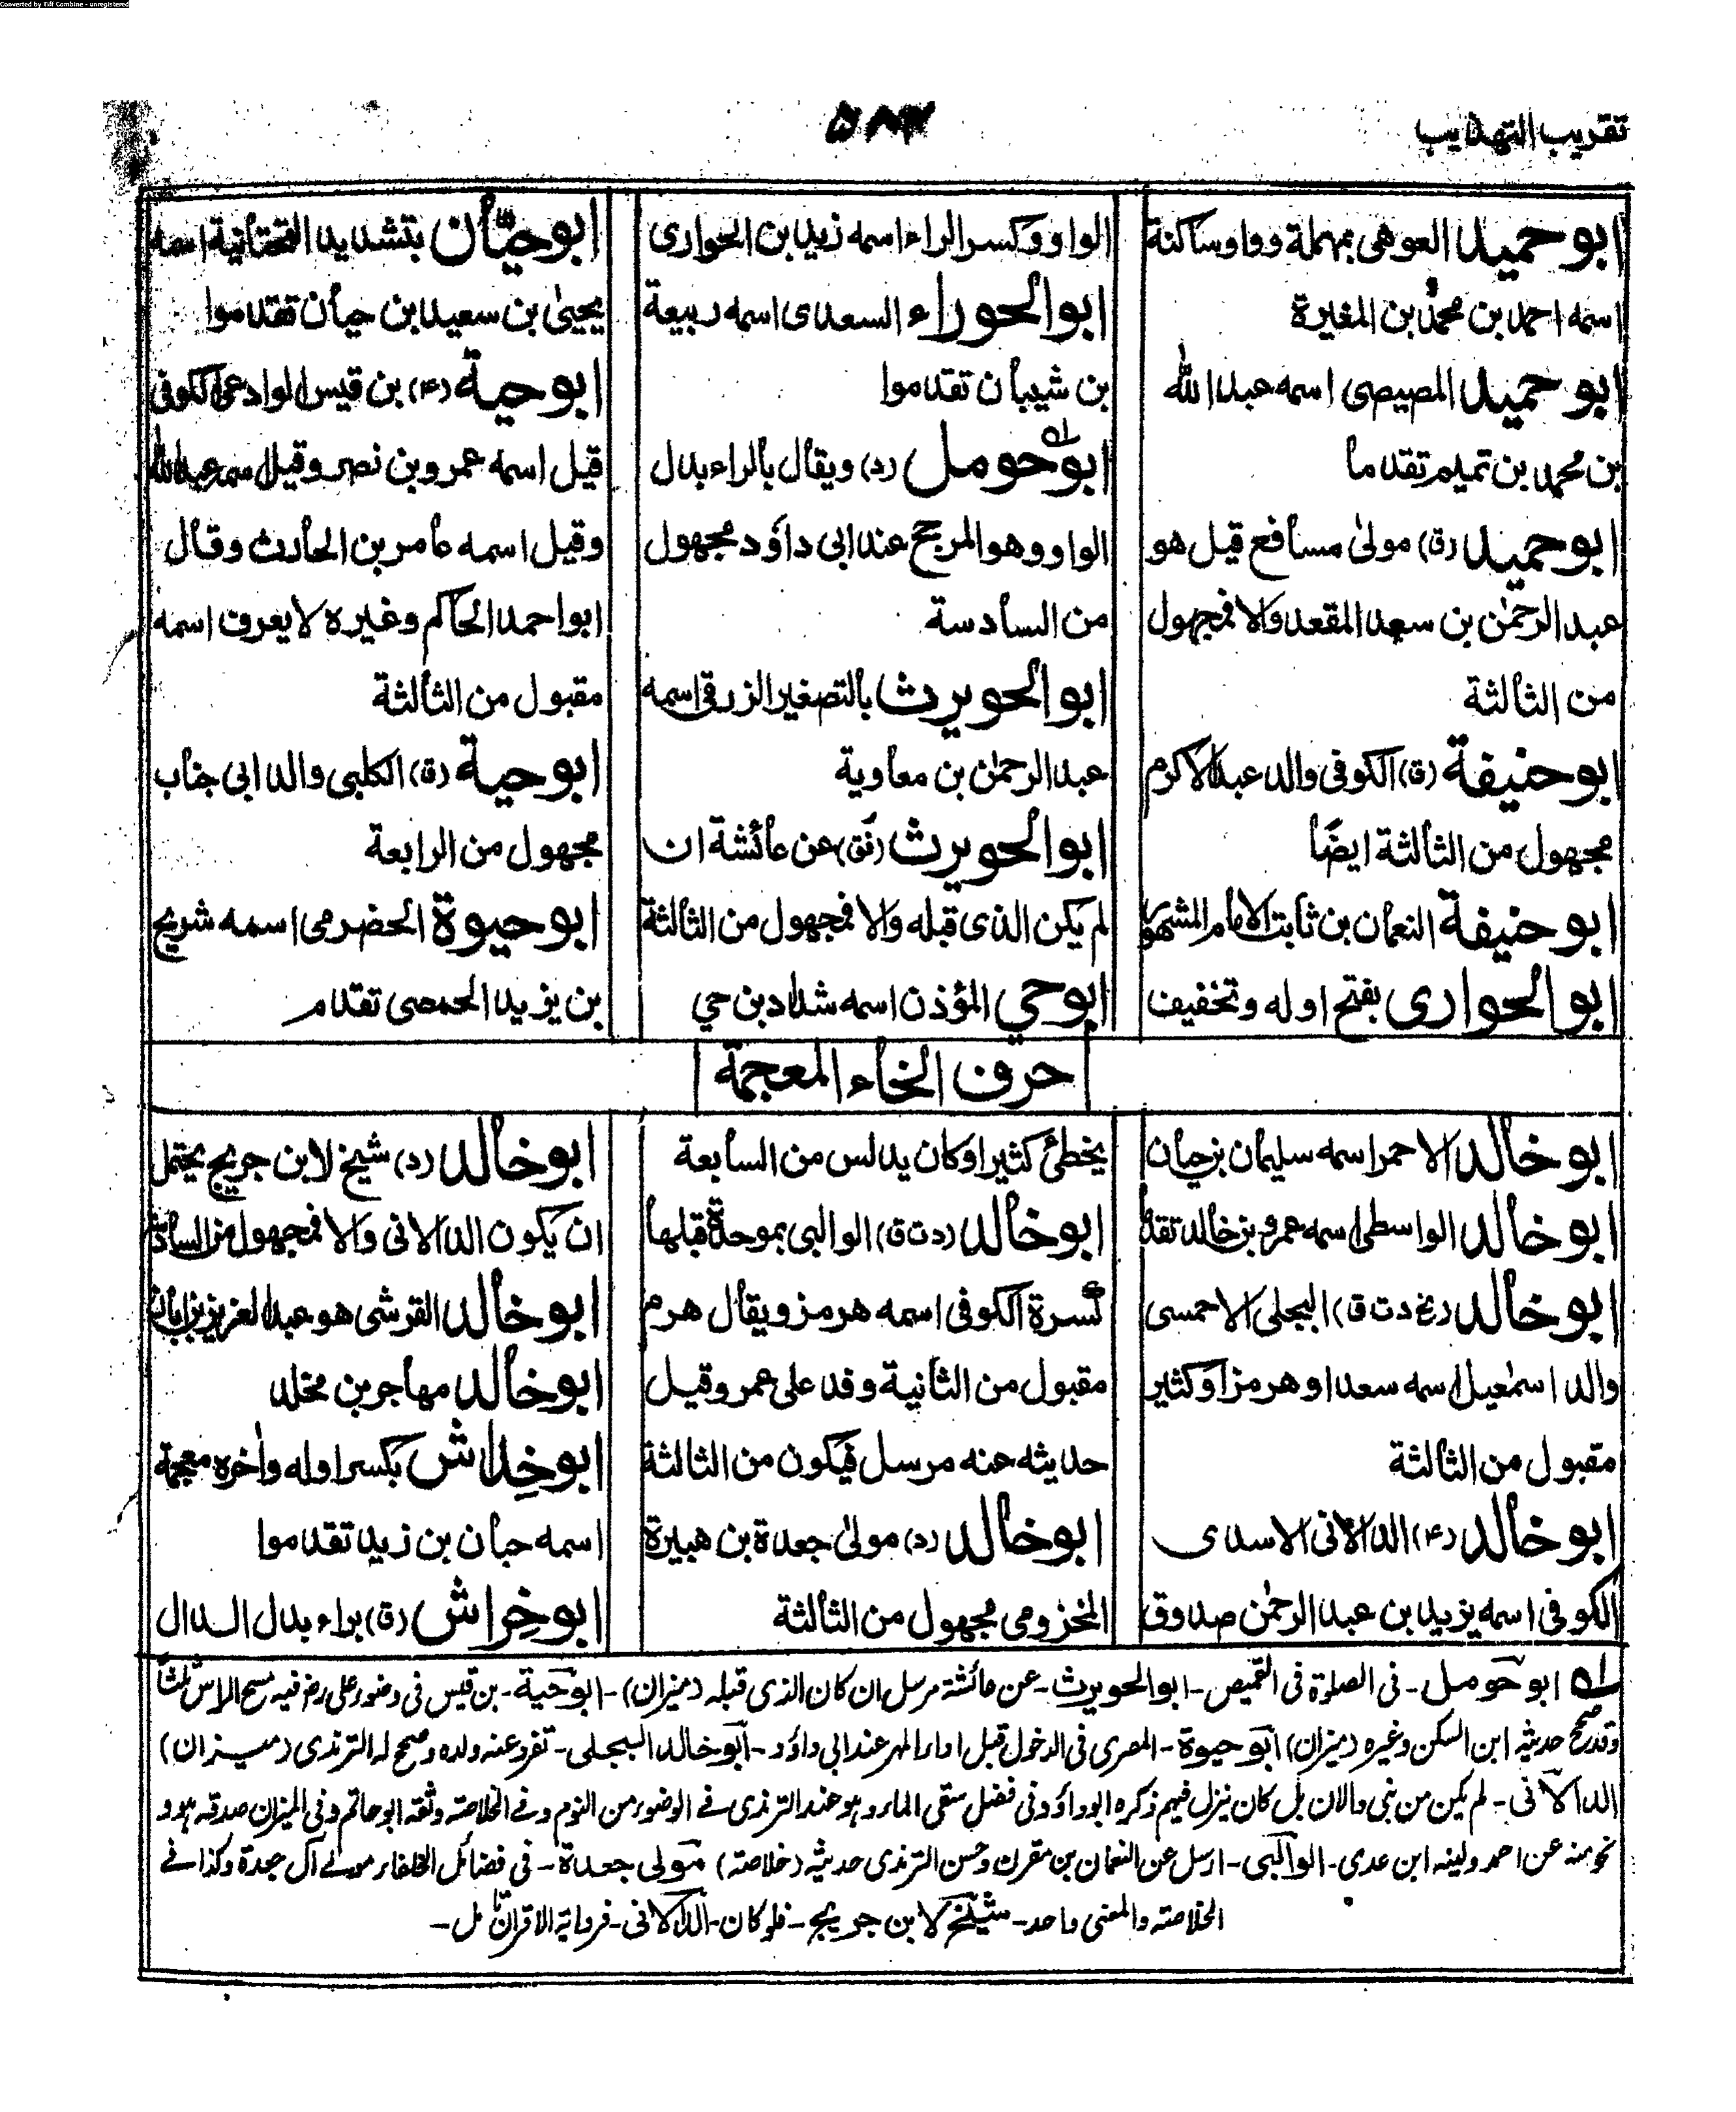 Converted by Tiff Combine - unregistered
تقريب التهذيب
۵۸۳
ابو حميد العوهى بمهملة وواو ساكنة
اسمه احمد بن محمد بن المغيرة
ابو حميد المصيصى اسمه عبد الله
بن محمد بن تميم تقدما
ابو حميد (ق) مولىٰ مسافع قيل هو
عبد الرحمٰن بن سعد المقعد والا فمجهول
من الثالثة
ابو حنيفة (ق) الكوفى والد عبد الاكرم
مجهول من الثالثة ايضًا
ابو حنيفة النعمان بن ثابت الامام المشهور
ابو الحوارى بفتح اوله وتخفيف
الواو وكسر الراء اسمه زيد بن الحوارى
ابو الحوراء السعدى اسمه ربيعة
بن شيبان تقدموا
ابو حومل (د) ويقال بالراء بدل
الواو وهو المرجح عند ابى داؤد مجهول
من السادسة
ابو الحويرث بالتصغير الزرقى اسمه
عبد الرحمٰن بن معاوية
ابو الحويرث (فق) عن عائشة ان
لم يكن الذى قبله والا فمجهول من الثالثة
ابو حي المؤذن اسمه شداد بن حي
ابو حيّان بتشديد التحتانية اسمه
يحيىٰ بن سعيد بن حيان تقدموا
ابو حية (۴) بن قيس الوادعى الكوفى
قيل اسمه عمرو بن نصر وقيل اسمه عبد الله
وقيل اسمه عامر بن الحارث وقال
ابو احمد الحاكم وغيره لا يعرف اسمه
مقبول من الثالثة
ابو حية (ق) الكلبى والد ابى جناب
مجهول من الرابعة
ابو حيوة الحضرمى اسمه شريح
بن يزيد الحمصى تقدم
حرف الخاء المعجمة
ابو خالد الاحمر اسمه سليمان بن حيان
ابو خالد الواسطى اسمه عمرو بن خالد تقدما
ابو خالد (بخ د ت ق) البجلى الاحمسى
والد اسمٰعيل اسمه سعد او هرمز او كثير
مقبول من الثالثة
ابو خالد (۴) الدالانى الاسدى
الكوفى اسمه يزيد بن عبد الرحمٰن صدوق
يخطئ كثيرا وكان يدلس من السابعة
ابو خالد (د ت ق) الوالبى بموحدة قبلها
كسرة الكوفى اسمه هرمز ويقال هرم
مقبول من الثانية وفد على عمر وقيل
حديثه عنه مرسل فيكون من الثالثة
ابو خالد (د) مولىٰ جعدة بن هبيرة
المخزومى مجهول من الثالثة
ابو خالد (د) شيخ لابن جريج يحتمل
ان يكون الدالانى والا فمجهول من السادسة
ابو خالد القرشى هو عبد العزيز بن ابان
ابو خالد مهاجر بن مخلد
ابو خِداش بكسر اوله واٰخره معجمة
اسمه حبان بن زيد تقدموا
ابو خِراش (ق) براء بدل الدال
لـه ابو حومل۔ فى الصلوٰة فى القميص۔ ابو الحويرث۔ عن عائشة مرسل ان كان الذى قبله (ميزان)۔ ابو حية۔ بن قيس فى وضوء على رضـ فيه مسح الراس ثلثاً
وقد صحح حديثه ابن السكن وغيره (ميزان) ابو حيوة۔ المصرى فى الدخول قبل اداء المهر عند ابى داؤد۔ ابو خالد البجلى۔ تفرد عنه ولده وصحح له الترمذى (ميزان)
الدالانى۔ لم يكن من بنى دالان بل كان ينزل فيهم ذكره ابو داؤد فى فضل سقى الماء وهو عند الترمذى فے الوضوء من النوم وفے الخلاصته وثقه ابو حاتم وفى الميزان صدقه هو و
نحو منه عن احمد ولينه ابن عدى۔ الوالبى۔ ارسل عن النعمان بن مقرن وحسن الترمذى حديثه (خلاصته) مولى جعدة۔ فى فضائل الخلفاء مولے آل جعدة وكذا فے
الخلاصته والمعنى واحد۔ شيخ لابن جريج۔ فلو كان۔ الدالانى۔ فرواية الاقران مل۔